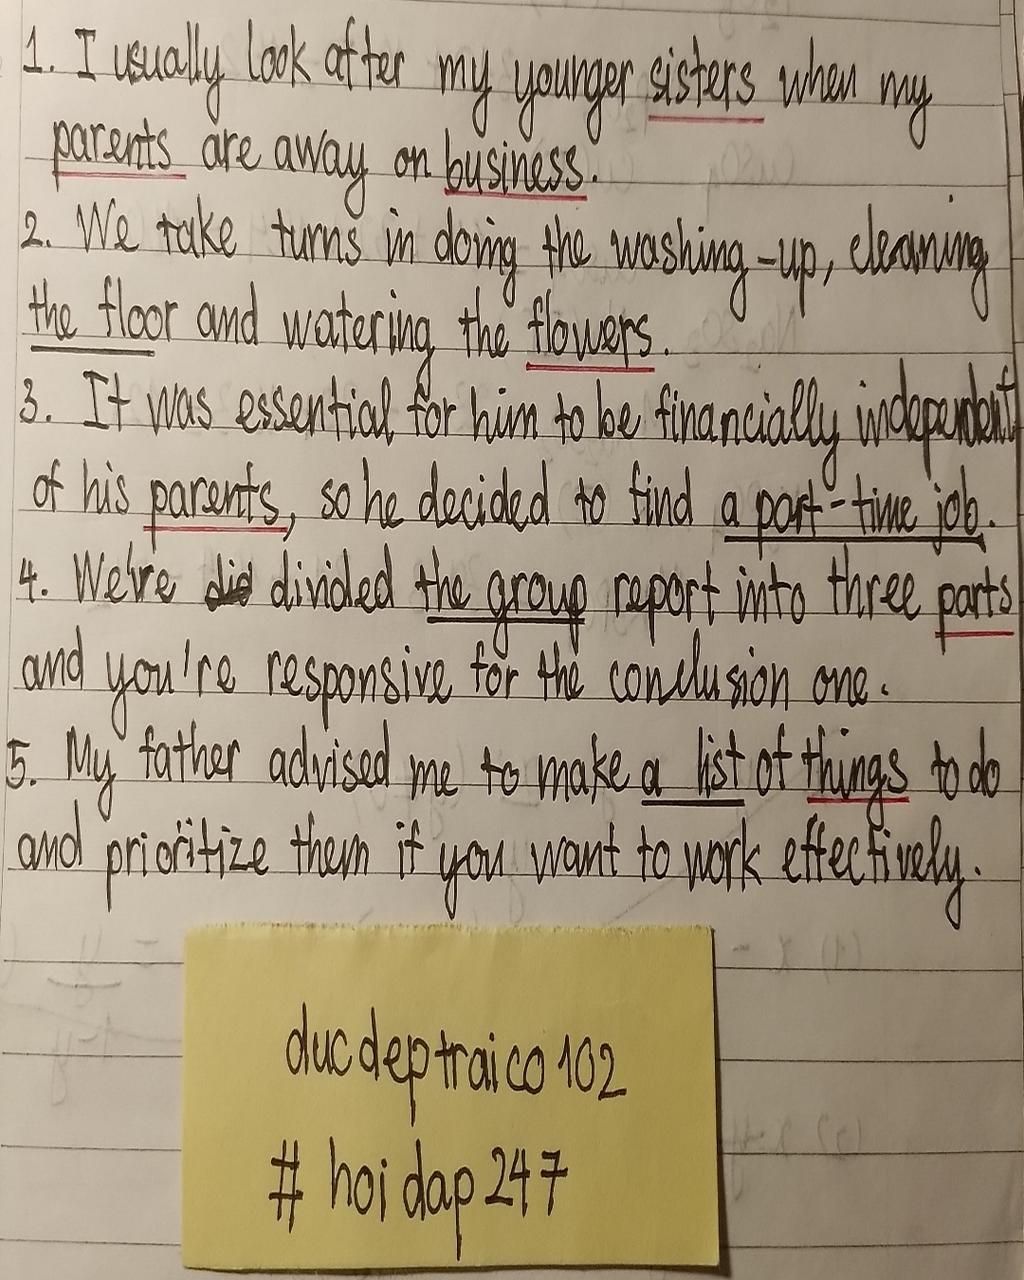 1. I usually look after my younger sisters when my
parents are away on business.
2. We take turns in doing the washing-up, cleaning
the floor and watering the flowers.
3. It was essential for him to be financially independent
of his parents, so he decided to find a part-time job.
4. We're divided the group report into three parts
and you're responsive for the conclusion one.
5. My father advised me to make a list of things to do
and prioritize them if you want to work effectively.
ducdeptraico102
# hoidap247